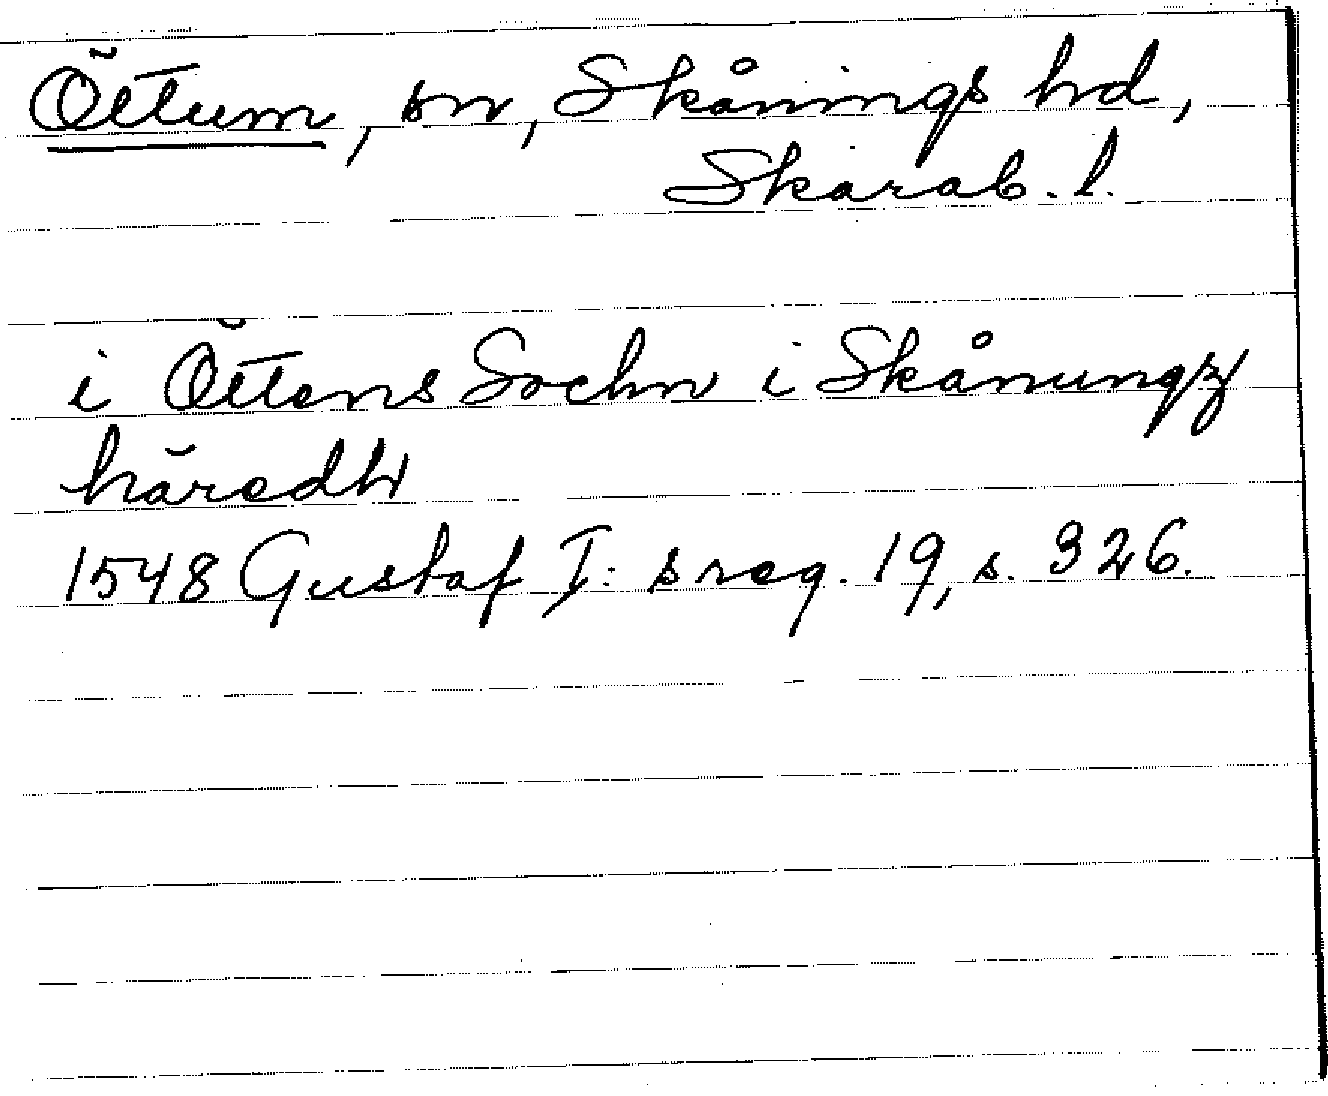 Öttum, sn, Skånings hd,
Skarab. l.
i Öttens Sochn i Skånungz
häredh
1548 Gustaf I: s reg. 19, s. 326.